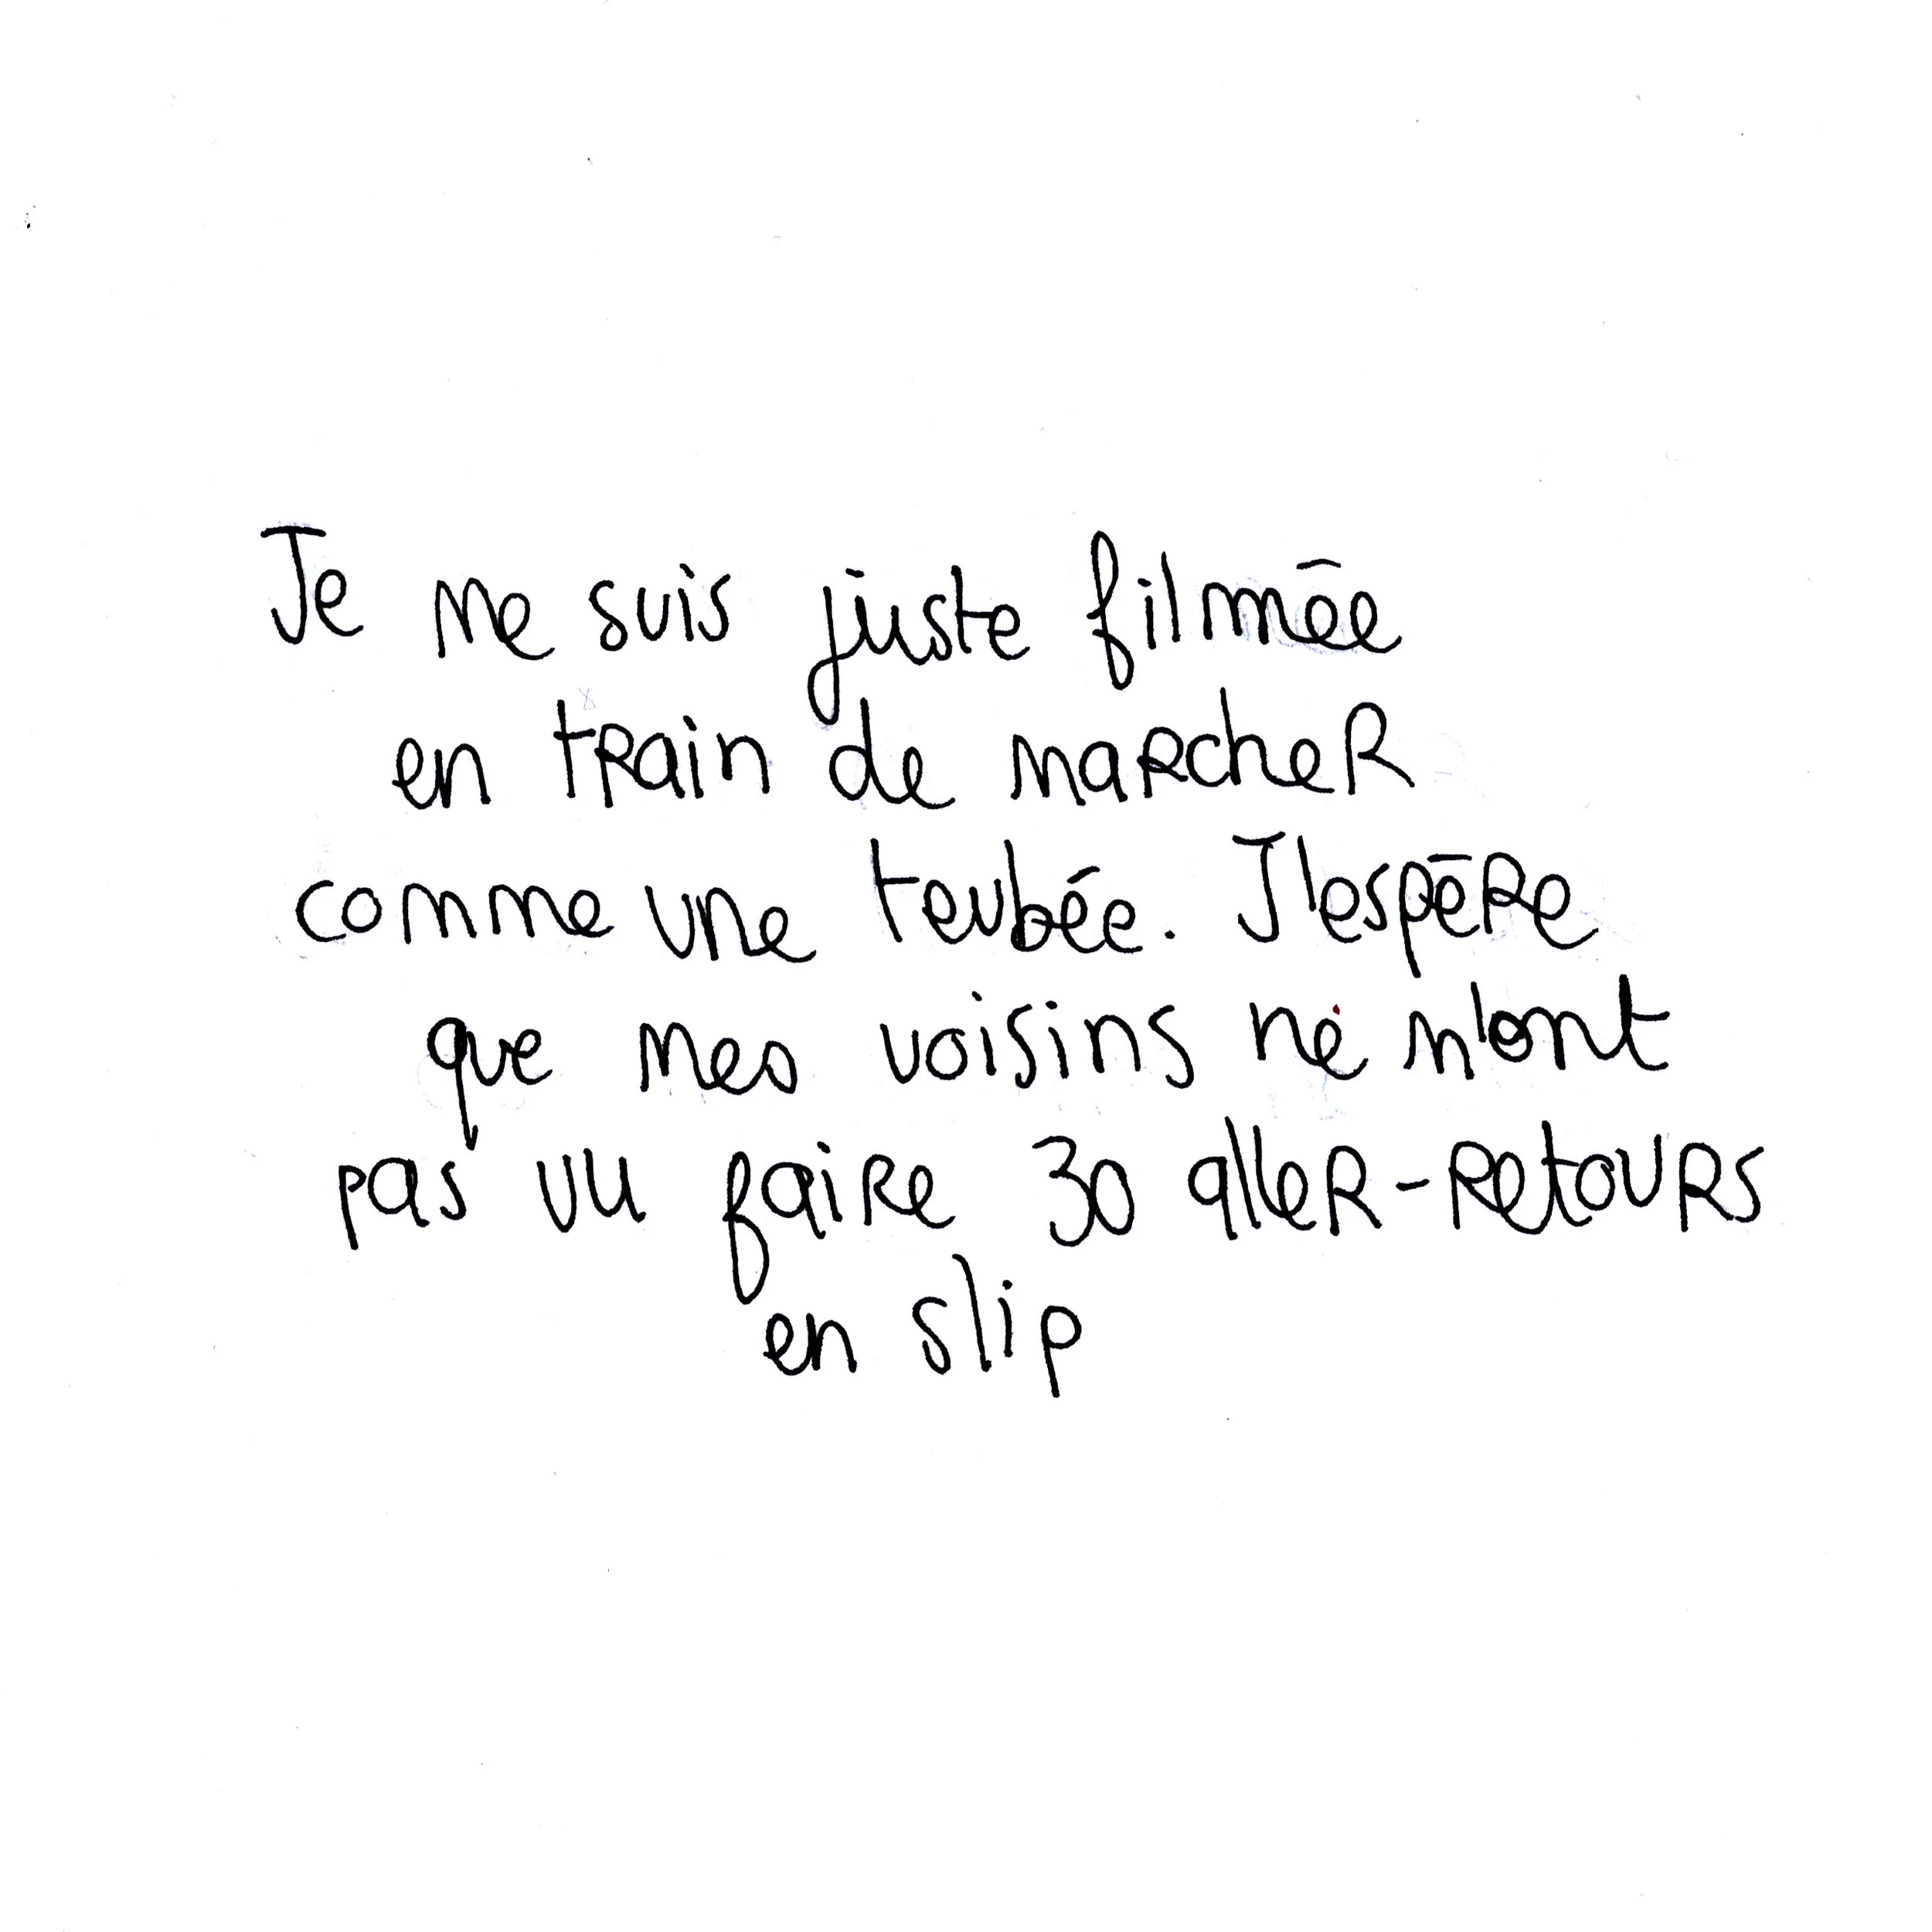 Je me suis juste filmée
en train de marcher
comme une teubée. J'espère
que mes voisins ne m'ont
pas vu faire 30 aller-retours
en slip